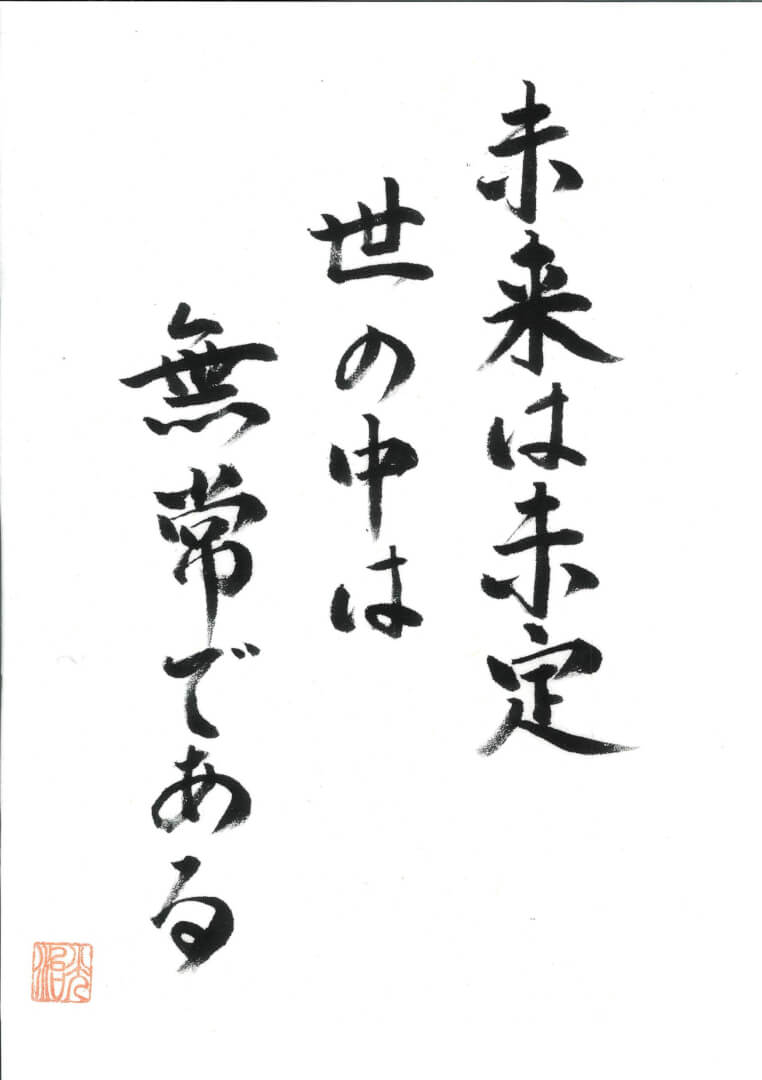 未来は未定
世の中は
無常である